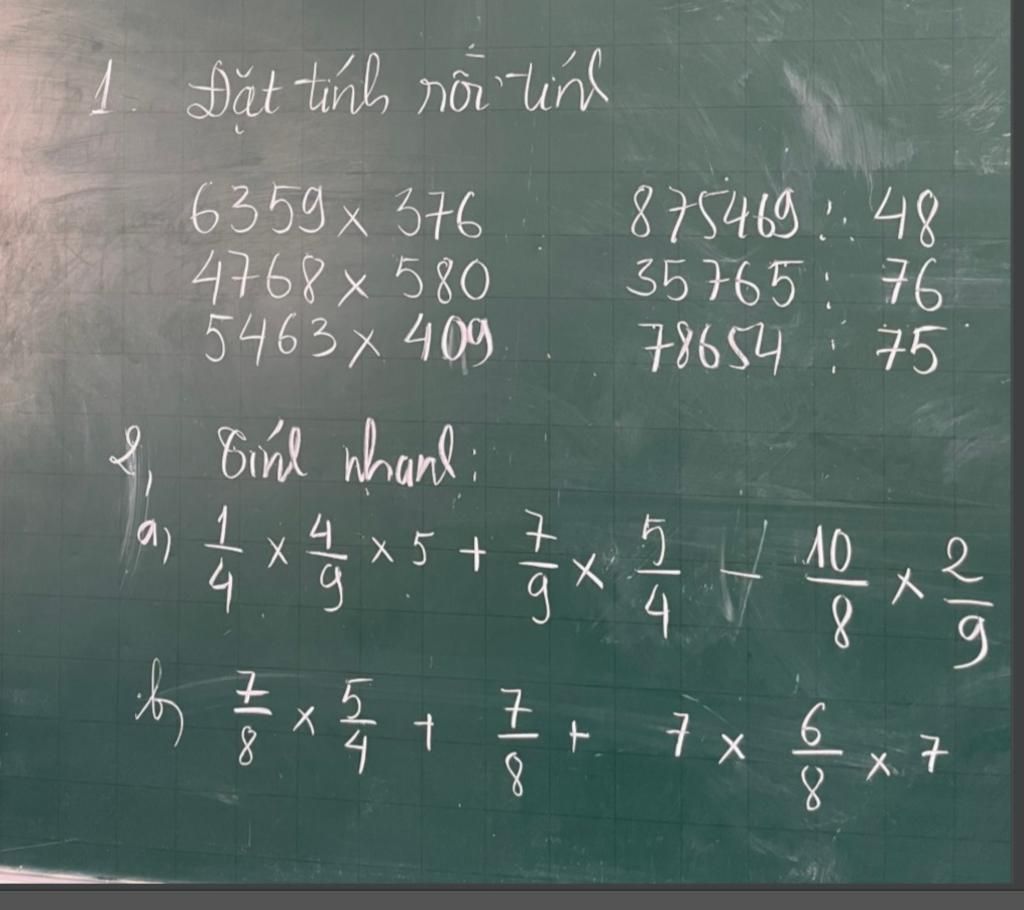 1. Đặt tính rồi tính
6359 x 376 875469 : 48
4768 x 580 35765 : 76
5463 x 409 78654 : 75
2, Tính nhanh:
a, 1/4 x 4/9 x 5 + 7/9 x 5/4 - 10/8 x 2/9
b, 7/8 x 5/4 + 7/8 + 7 x 6/8 x 7